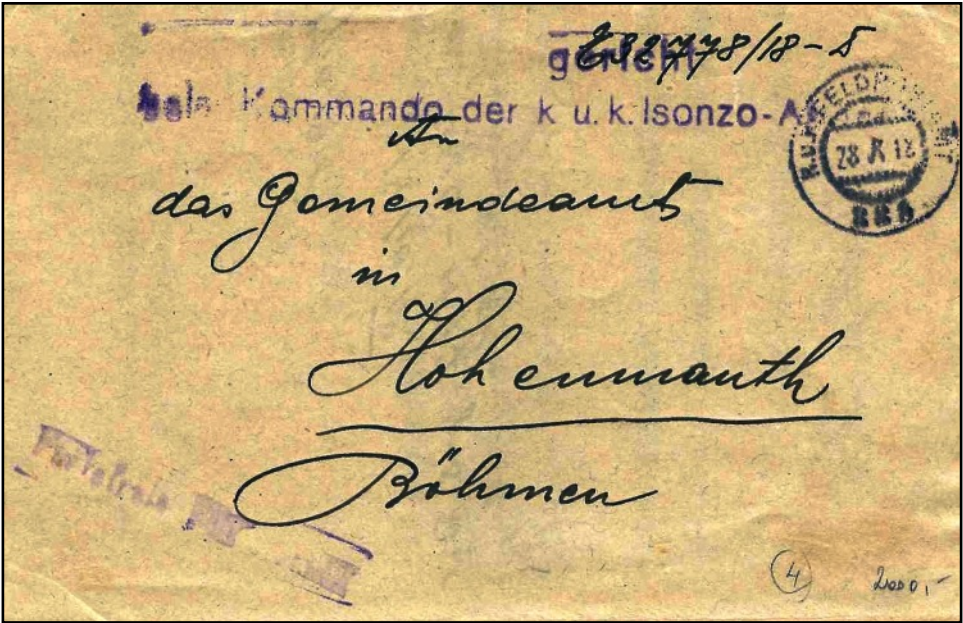 gericht E 32778/18-5
beim Kommando der k u. k. Isonzo-A
K.u.K. FELDPOSTAMT
28 X 18
An
das Gemeindeamt
in
Hohenmauth
Böhmen
Portofreie
4
2000,-